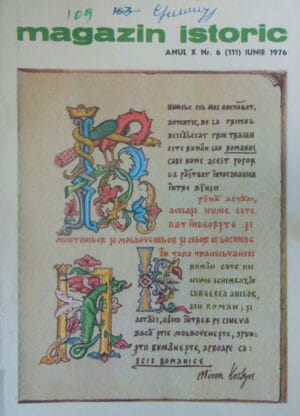 109
magazin istoric
ANUL X Nr. 6 (111) IUNIE 1976
NUMELE CEL MAI ADEVĂRAT,
AUTENTIC, DE LA PRIMUL
DESCĂLECAT PRIN TRAIAN
ESTE RUMÂN SAU ROMANUS,
CARE NUME ACEST POPOR
L-A PĂSTRAT ÎNTOTDEAUNA
ÎNTRE DÎNȘII
PÎNĂ ASTĂZI,
ACELAȘI NUME ESTE
DAT ÎNDEOBȘTE ȘI
MUNTENILOR ȘI MOLDOVENILOR ȘI CELOR CE LOCUIESC
ÎN ȚARA TRANSILVANIEI
RUMÂN ESTE UN
NUME SCHIMBAT, ÎN
CURGEREA ANILOR,
DIN ROMAN; ȘI
ASTĂZI, CÎND ÎNTREB PE CINEVA
DACĂ ȘTIE MOLDOVENEȘTE, SPUN:
ȘTII RUMÂNEȘTE, APROAPE CA:
SCIS ROMANICE
Miron Costin